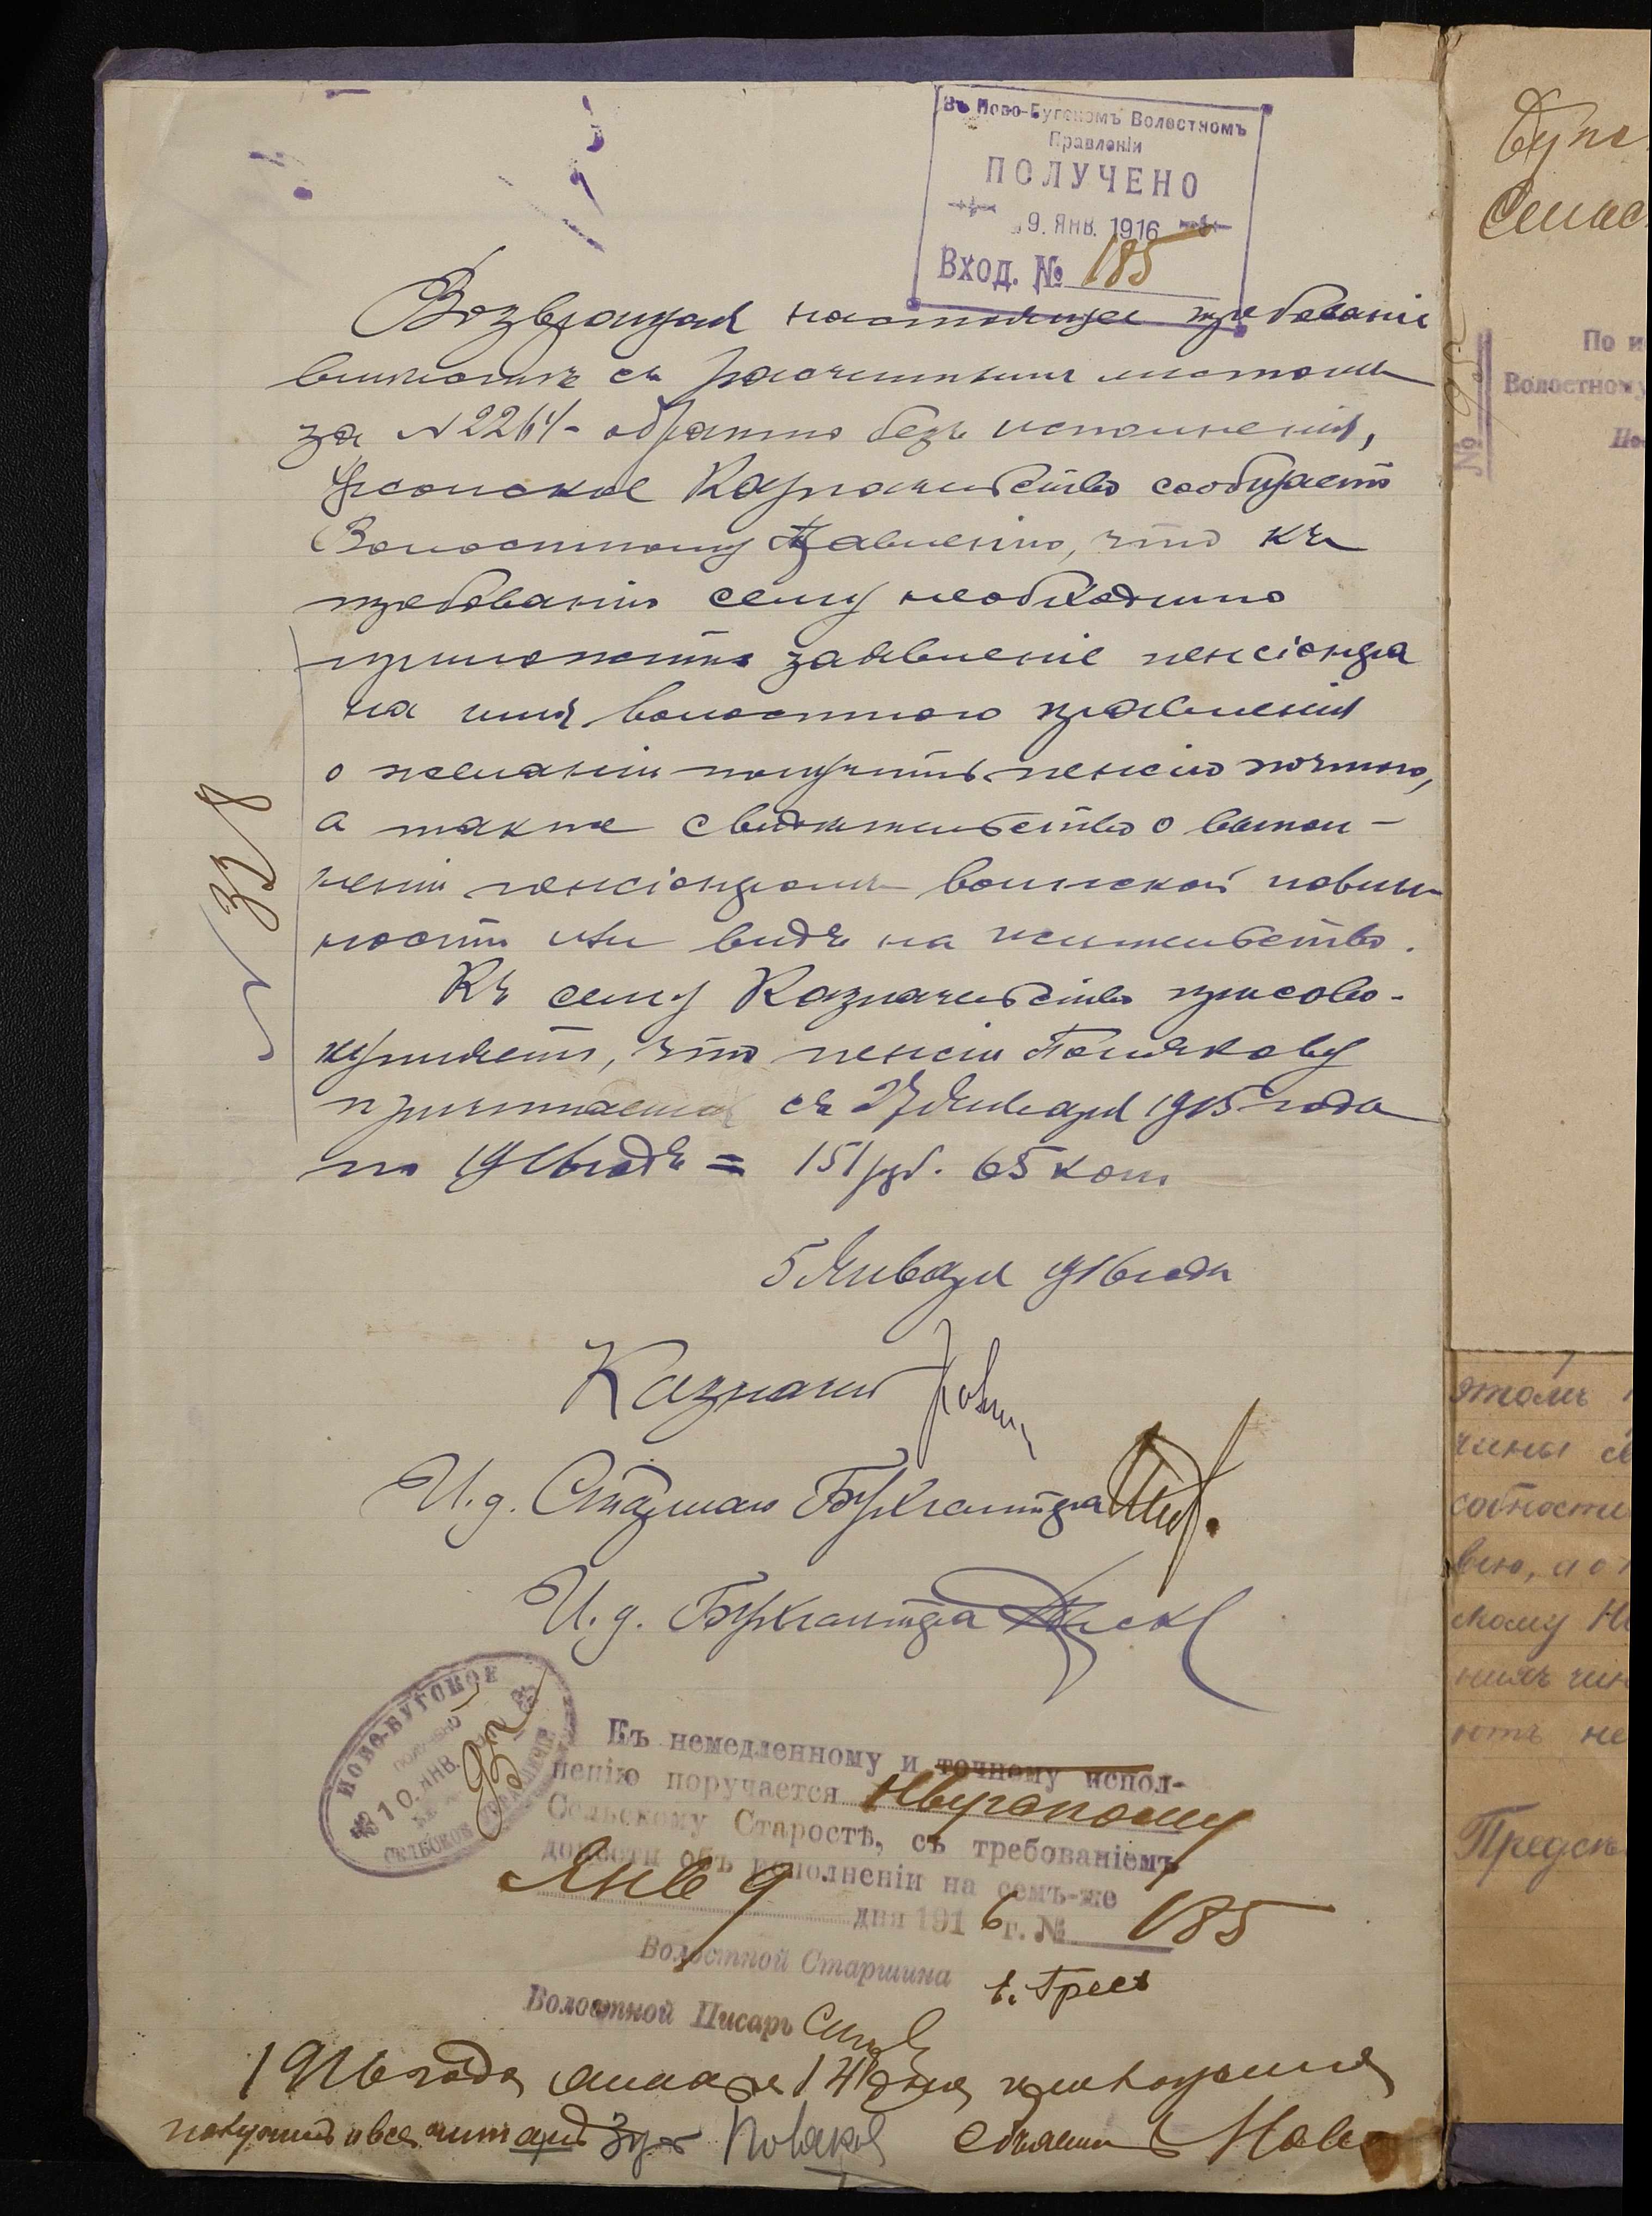 Въ Ново-Бугскомъ Волостномъ
Правленіи
ПОЛУЧЕНО
9. ЯНВ. 1916
Вход. № 185
Возвращая настоящее требованіе
вмѣстѣ съ расчетнымъ листомъ
за №2264- обратно безъ исполненія,
Херсонское Казначейство сообщаетъ
Волостному Правленію, что къ
требованію сему необходимо
приложить заявленіе пенсіонера
на имя волостного правленія
о желаніи получить пенсію почтою,
а также свидѣтельство о выпол-
неніи пенсіонеромъ воинской повин-
ности или видъ на жительство.
Къ сему Казначейство присово-
купляетъ, что пенсіи Полякову
причитается съ 27 Января 1915 года
по 1916 годъ = 151 руб. 65 коп.
№ 328
5 Января 1916 года
Казначей
И. д. Старшаго Бухгалтера
И. д. Бухгалтера
НОВО-БУГСКОЕ
ПОЛУЧЕНО
10. ЯНВ.
СЕЛЬСКОЕ ПРАВЛЕНІЕ
Къ немедленному и точному испол-
ненію поручается Нбугскому
Сельскому Старостѣ, съ требованіемъ
донести объ исполненіи на семъ-же
Янв 9 дня 1916 г. № 185
Волостной Старшина
Волостной Писарь
1916 года января 14 дня